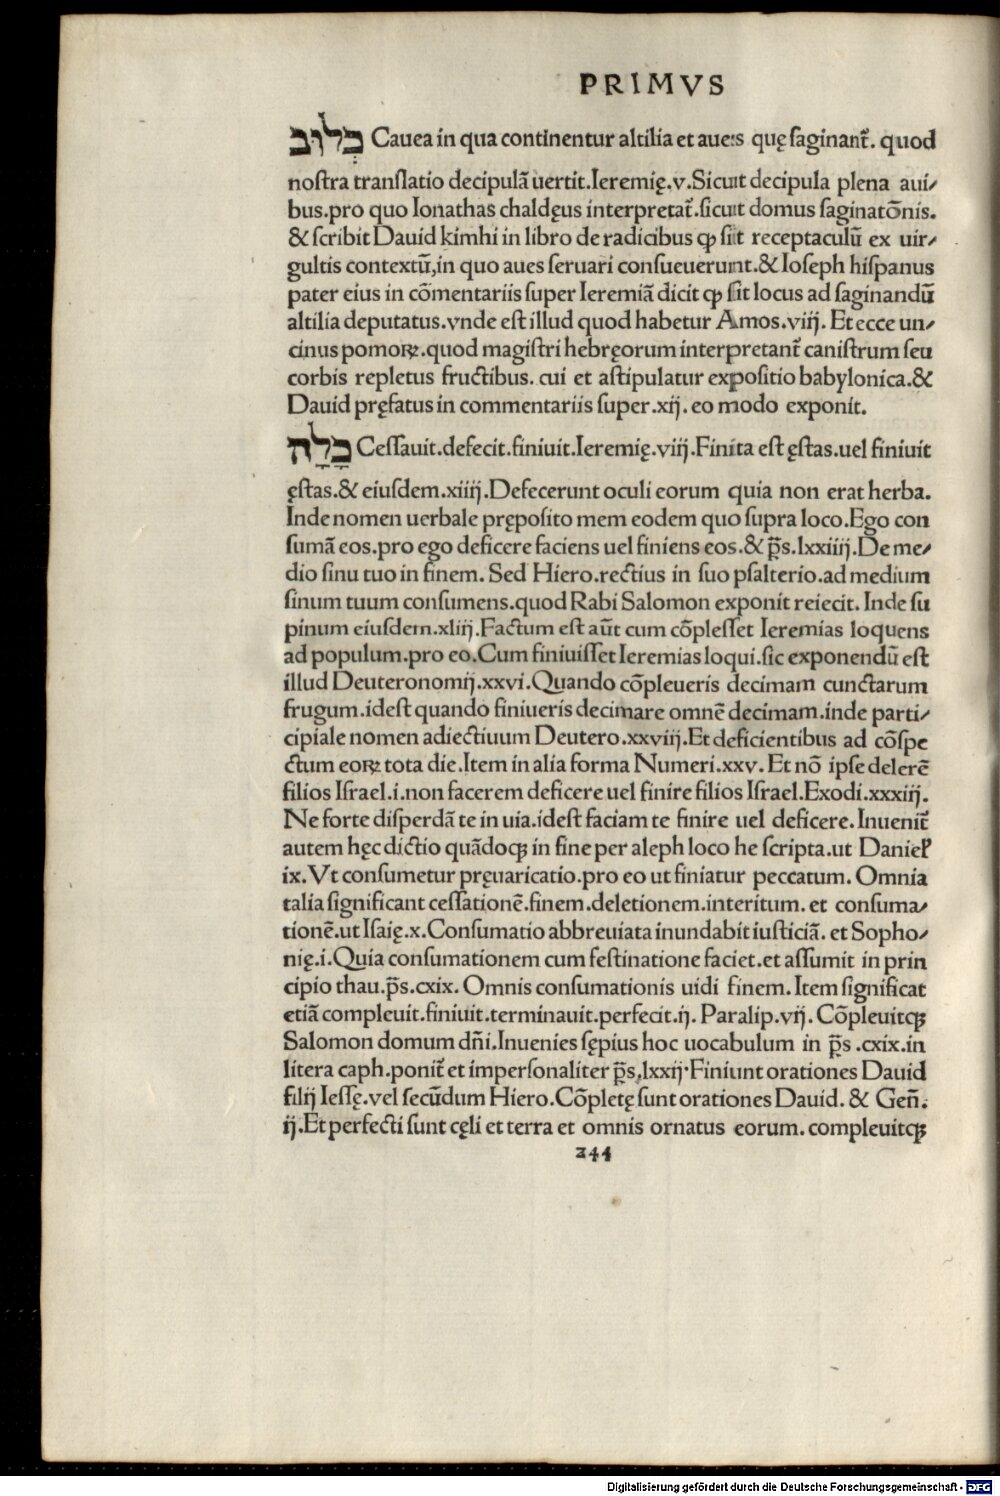 PRIMVS
כְּלוּב Cauea in qua continentur altilia et aues quę ſaginant̃. quod
noſtra tranſlatio decipulã uertit.Ieremię.v.Sicut decipula plena aui⸗
bus.pro quo Ionathas chaldęus interpretat̃.ſicut domus ſaginatõnis.
& ſcribit Dauid kimhi in libro de radicibus ꝙ ſit receptaculũ ex uir⸗
gultis contextũ,in quo aues ſeruari conſueuerunt.& Ioſeph hiſpanus
pater eius in cõmentariis ſuper Ieremiã dicit ꝙ ſit locus ad ſaginandũ
altilia deputatus.vnde eſt illud quod habetur Amos.viij. Et ecce un⸗
cinus pomoꝝ.quod magiſtri hebręorum interpretant̃ caniſtrum ſeu
corbis repletus fructibus. cui et aſtipulatur expoſitio babylonica.&
Dauid pręfatus in commentariis ſuper .xij. eo modo exponit.
כָּלָה Ceſſauit.defecit.finiuit.Ieremię.viij.Finita eſt ęſtas.uel finiuit
ęſtas.& eiuſdem.xiiij.Defecerunt oculi eorum quia non erat herba.
Inde nomen uerbale prępoſito mem eodem quo ſupra loco.Ego con
ſumã eos.pro ego deficere faciens uel finiens eos.& p̃s.lxxiiij.De me⸗
dio ſinu tuo in finem. Sed Hiero.rectius in ſuo pſalterio.ad medium
ſinum tuum conſumens.quod Rabi Salomon exponit reiecit. Inde ſu
pinum eiuſdem.xliij.Factum eſt aũt cum cõpleſſet Ieremias loquens
ad populum.pro eo.Cum finiuiſſet Ieremias loqui.ſic exponendũ eſt
illud Deuteronomij.xxvi.Quando cõpleueris decimam cunctarum
frugum.ideſt quando finiueris decimare omnẽ decimam.inde parti⸗
cipiale nomen adiectiuum Deutero.xxviij.Et deficientibus ad cõſpe
ctum eoꝝ tota die.Item in alia forma Numeri.xxv. Et nõ ipſe delerẽ
filios Iſrael.i.non facerem deficere uel finire filios Iſrael.Exodi.xxxiij.
Ne forte diſperdã te in uia.ideſt faciam te finire uel deficere. Inuenit̃
autem hęc dictio quãdoqꝫ in fine per aleph loco he ſcripta.ut Danieľ
ix.Vt conſumetur pręuaricatio.pro eo ut finiatur peccatum. Omnia
talia ſignificant ceſſationẽ.finem.deletionem.interitum. et conſuma⸗
tionẽ.ut Iſaię.x.Conſumatio abbreuiata inundabit iuſticiã. et Sopho⸗
nię.i.Quia conſumationem cum feſtinatione faciet.et aſſumit in prin
cipio thau.p̃s.cxix. Omnis conſumationis uidi finem. Item ſignificat
etiã compleuit.finiuit.terminauit.perfecit.ij. Paralip.vij. Cõpleuitqꝫ
Salomon domum dñi.Inuenies ſępius hoc uocabulum in p̃s .cxix.in
litera caph.ponit̃ et imperſonaliter p̃s.lxxij.Finiunt orationes Dauid
filij Ieſſę.vel ſecũdum Hiero.Cõpletę ſunt orationes Dauid. & Geñ.
ij.Et perfecti ſunt cęli et terra et omnis ornatus eorum. compleuitqꝫ
244
Digitalisierung gefördert durch die Deutsche Forschungsgemeinschaft - DFG